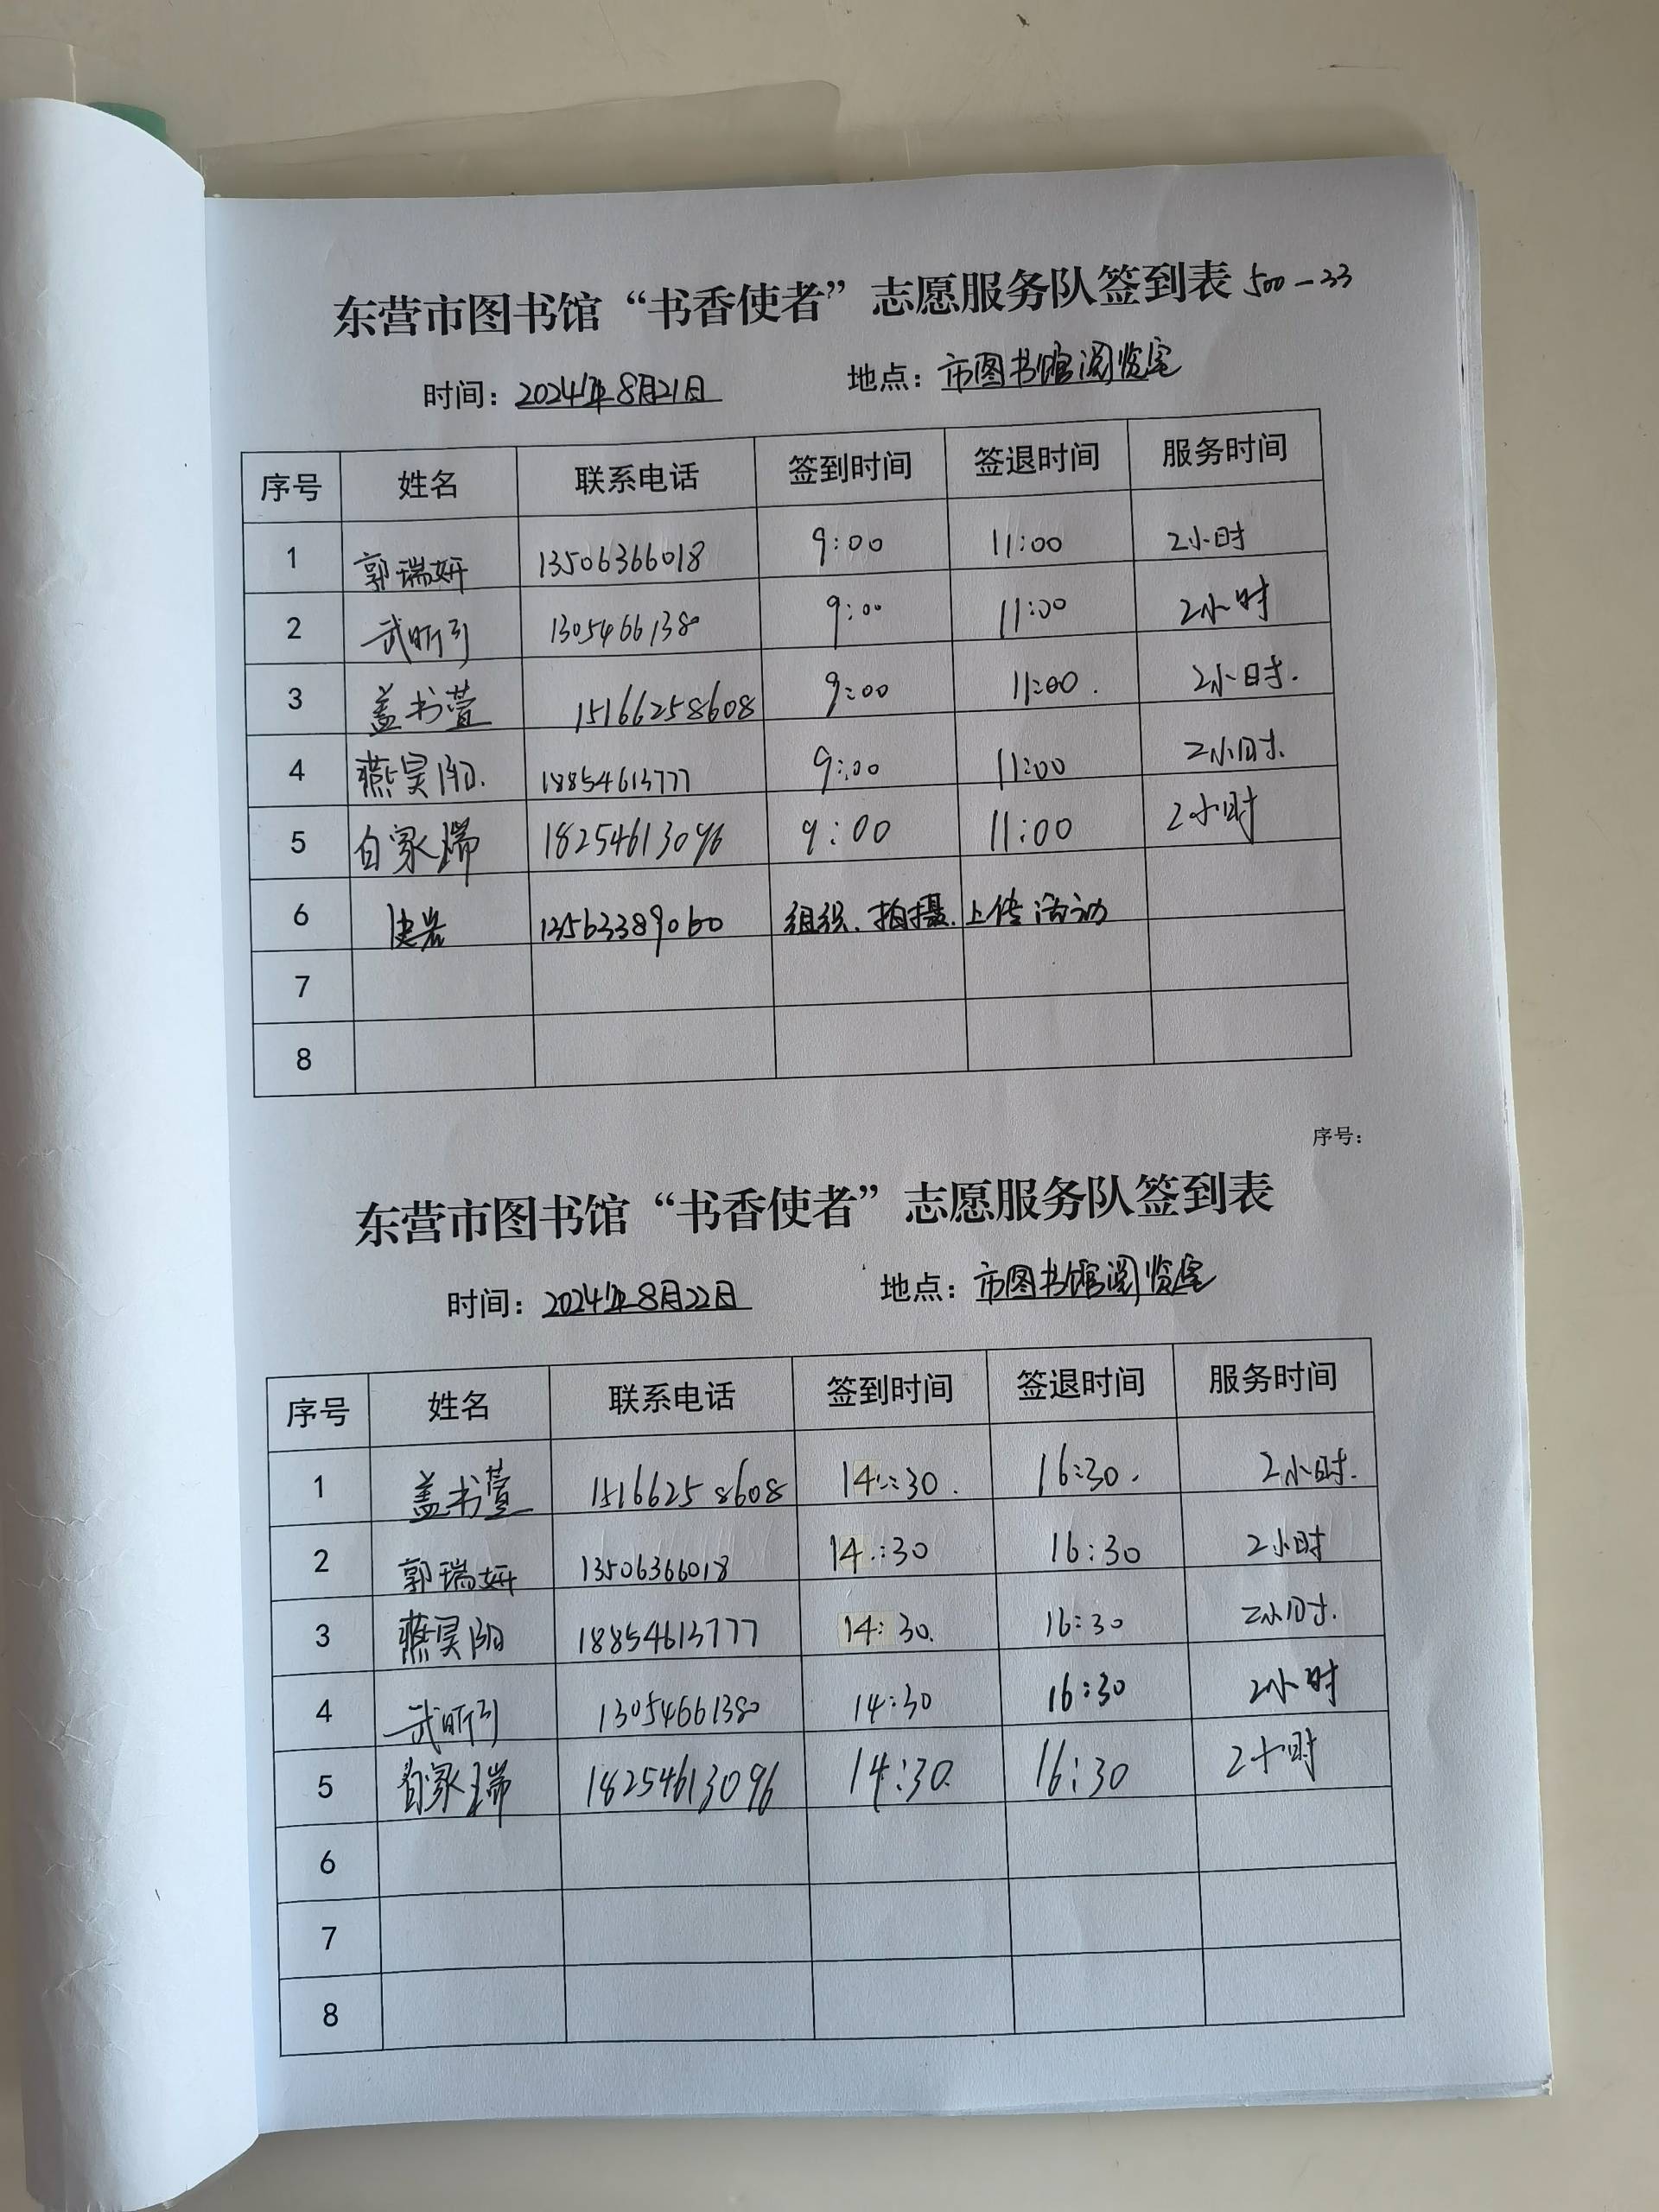 东营市图书馆“书香使者”志愿服务队签到表 500-33
时间：2024年8月21日 地点：市图书馆阅览室
序号 姓名 联系电话 签到时间 签退时间 服务时间
1 郭瑞妍 13506366018 9:00 11:00 2小时
2 武昕引 1305466138 9:00 11:00 2小时
3 盖书萱 15166258608 9:00 11:00. 2小时.
4 燕昊阳. 18854613777 9:00 11:00 2小时.
5 白家瑞 18254613096 9:00 11:00 2小时
6 13563389060 组织、拍摄、上传活动
7
8
序号：
东营市图书馆“书香使者”志愿服务队签到表
时间：2024年8月22日 地点：市图书馆阅览室
序号 姓名 联系电话 签到时间 签退时间 服务时间
1 盖书萱 15166258608 14:30. 16:30. 2小时.
2 郭瑞妍 13506366018 14:30 16:30 2小时
3 燕昊阳 18854613777 14:30. 16:30 2小时.
4 武昕引 13054661380 14:30 16:30 2小时
5 白家瑞 18254613096 14:30. 16:30 2小时
6
7
8